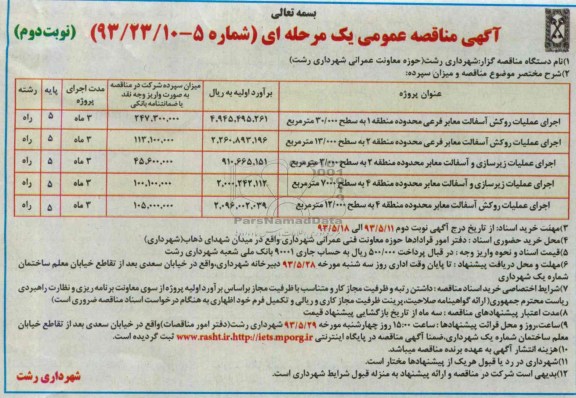 بسمه تعالی
آگهی مناقصه عمومی یک مرحله ای (شماره ۵-۹۳/۲۳/۱۰) (نوبت دوم)
۱)نام دستگاه مناقصه گزار:شهرداری رشت(حوزه معاونت عمرانی شهرداری رشت)
۲)شرح مختصر موضوع مناقصه و میزان سپرده:
عنوان پروژه برآورد اولیه به ریال میزان سپرده شرکت در مناقصه به صورت واریز وجه نقد یا ضمانتنامه بانکی مدت اجرای پروژه پایه رشته
اجرای عملیات روکش آسفالت معابر فرعی محدوده منطقه ۱ به سطح ۳۰/۰۰۰ مترمربع ۴،۹۴۵،۴۹۵،۲۶۱ ۲۴۷،۳۰۰،۰۰۰ ۳ ماه ۵ راه
اجرای عملیات روکش آسفالت معابر فرعی محدوده منطقه ۲ به سطح ۱۳/۰۰۰ مترمربع ۲،۲۶۰،۸۹۳،۱۹۶ ۱۱۳،۱۰۰،۰۰۰ ۳ ماه ۵ راه
اجرای عملیات زیرسازی و آسفالت معابر محدوده منطقه ۲ به سطح ۲/۰۰۰ مترمربع ۹۱۰،۶۶۵،۱۵۱ ۴۵،۶۰۰،۰۰۰ ۳ ماه ۵ راه
اجرای عملیات زیرسازی و آسفالت معابر محدوده منطقه ۴ به سطح ۷۰۰۰ مترمربع ۲،۰۰۰،۲۴۲،۱۱۲ ۱۰۰،۱۰۰،۰۰۰ ۳ ماه ۵ راه
اجرای عملیات روکش آسفالت معابر محدوده منطقه ۴ به سطح ۱۲/۰۰۰ مترمربع ۲،۰۹۶،۰۰۲،۰۳۹ ۱۰۵،۰۰۰،۰۰۰ ۳ ماه ۵ راه
ParsNamadData
۳)مهلت خرید اسناد: از تاریخ درج آگهی نوبت دوم ۹۳/۵/۱۱ الی ۹۳/۵/۱۸
۴)محل خرید حضوری اسناد : دفتر امور قرادادها حوزه معاونت فنی عمرانی شهرداری واقع در میدان شهدای ذهاب(شهرداری)
۵)قیمت اسناد و نحوه واریز وجه : در قبال پرداخت ۵۰۰/۰۰۰ ریال به حساب جاری ۹۰۰۰۱ بانک ملی شعبه شهرداری رشت
۶)مهلت و محل دریافت پیشنهاد : تا پایان وقت اداری روز سه شنبه مورخه ۹۳/۵/۲۸ دبیرخانه شهرداری،واقع در خیابان سعدی بعد از تقاطع خیابان معلم ساختمان شماره یک شهرداری
۷)شرایط اختصاصی خرید اسناد مناقصه: داشتن رتبه و ظرفیت مجاز کار و متناسب با ظرفیت مجاز براساس برآورد اولیه پروژه از سوی معاونت برنامه ریزی و نظارت راهبردی
ریاست محترم جمهوری(ارائه گواهینامه صلاحیت،پرینت ظرفیت مجاز کاری و ریالی و تکمیل فرم خود اظهاری به هنگام درخواست اسناد مناقصه ضروری است)
۸)مدت اعتبار پیشنهادهای مناقصه : سه ماه از تاریخ بازگشایی پیشنهاد قیمت
۹)ساعت،روز و محل قرائت پیشنهادها : ساعت ۱۵:۰۰ روز چهارشنبه مورخه ۹۳/۵/۲۹ شهرداری رشت(دفتر امور مناقصات)واقع در خیابان سعدی بعد از تقاطع خیابان
معلم ساختمان شماره یک شهرداری،ضمناً آگهی مناقصه در پایگاه اینترنتی www.rasht.ir،http://iets.mporg.ir ثبت گردیده است.
۱۰)هزینه انتشار آگهی به عهده برنده مناقصه میباشد.
۱۱)شهرداری در رد یا قبول هریک از پیشنهادها مختار است.
۱۲)بدیهی است شرکت در مناقصه و ارائه پیشنهاد به منزله قبول شرایط شهرداری است.
شهرداری رشت